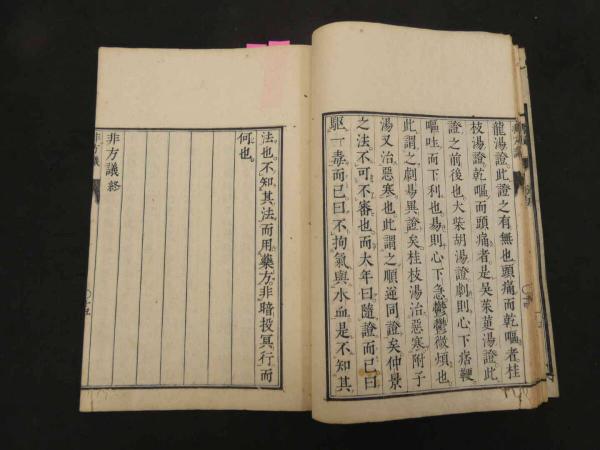 龍湯證此證之有無也頭痛而乾嘔者桂
枝湯證乾嘔而頭痛者是吳茱萸湯證此
證之前後也大柴胡湯證劇則心下痞鞕
嘔吐而下利也易則心下急鬱鬱微煩也
此謂之劇易異證矣桂枝湯治惡寒附子
湯又治惡寒也此謂之順逆同證矣仲景
之法不可不審也而大年曰隨證而已曰
驅一毒而已曰不拘氣與水血是不知其
法也不知其法而用藥方非暗投冥行而
何也
非方議終
非方議